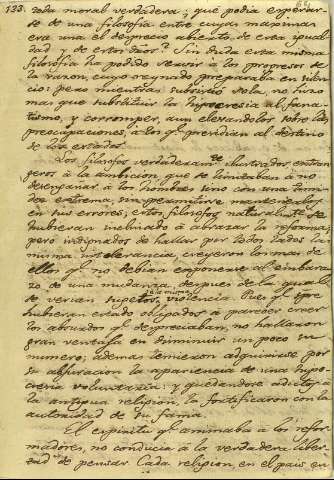 133.
toda moral verdadera; que podia esperar-
se de una filosofia entre cuyas maximas
era una el desprecio abierto de esta igual-
dad y de estos dros? Sin duda esta misma
filosofia ha podido servir à los progresos de
la razon, cuyo reynado preparaba en silen-
cio: pero mientras subsistio sola, no hizo
mas que substituir la hypocresia al fana-
tismo, y corromper, aun elevandolos sobre las
preocupaciones, à los ql presidian al destino
de los estados.
Los filosofos verdaderamte ilustrados estran-
geros à la ambicion, que se limitaban à no
desengañar à los hombres sino con una timi-
dez extrema, sin permitirse mantenerlos
en sus errores; estos filosofos naturalmte se
hubieran inclinado à abrazar la reforma;
pero indignados de hallar por todos lados la
misma intolerancia, creyeron los mas de
ellos ql no debian exponerse al embara-
zo de una mudanza, despues de la qual
se verian sugetos à la misma violencia. Pues ql spre
hubieran estado obligados à parecer creer
los absurdos ql despreciaban, no hallaron
gran ventaja en disminuir un poco su
numero; ademas temieron adquirirse por
su abjuracion la apariencia de una hypo-
cresia voluntaria: y quedandose adictos à
la antigua religion, la fortificaron con la
autoridad de su fama.
El espiritu ql animaba à los refor-
madores, no conducia à la verdadera liber-
tad de pensar. Cada religion, en el pais en